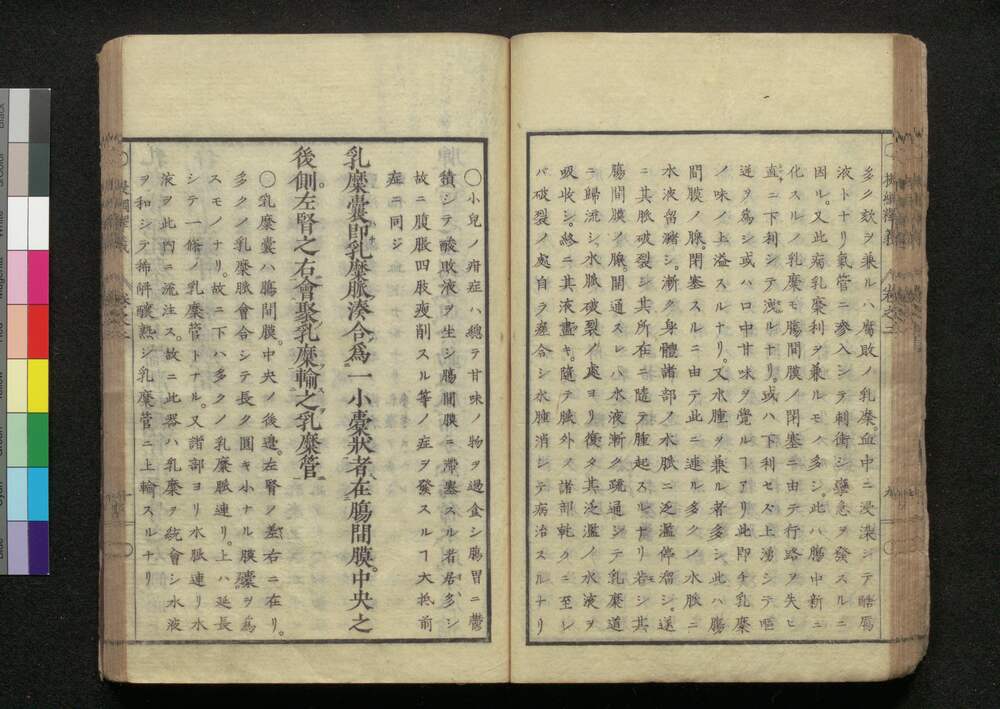 多ク欬ヲ兼ルハ腐敗ノ乳糜血中ニ浸染シテ酷厲
液トナリ氣管ニ滲入シテ刺衝シ壅急ヲ發スルニ
因ル。又此病乳糜利ヲ兼ルモノ多シ。此ハ膓中新ニ
化スルノ乳糜モ膓間膜ノ閉塞ニ由テ行路ヲ失ヒ
直ニ下利シテ洩ルナリ。或ハ下利セズ上湧シテ嘔
逆ヲ爲シ或ハ口中甘味ヲ覺ルヿアリ此即チ乳糜
ノ味ノ上溢スルナリ。又水腫ヲ兼ル者多シ。此ハ膓
間膜ノ腺閉塞スルニ由テ此ニ連ル多クノ水脈ニ
水液留瀦シ。漸ク身體諸部ノ水脈ニ泛濫停溜シ。遂
ニ其脈破裂シ其所在ニ隨テ腫起スルナリ若シ其
膓間膜ノ腺開通スレバ水液漸ク疏通シテ乳糜道
ニ歸流シ水脈破裂ノ處ヨリ復タ其泛濫ノ水液ヲ
吸收シ。終ニ其液盡キ。隨テ脈外ノ諸部乾クニ至レ
バ破裂ノ處自ラ癒合シ水腫消シテ病治スルナリ
○小兒ノ疳症ハ總テ甘味ノ物ヲ過食シ膓胃ニ鬱
積シテ酸敗液ヲ生シ膓間膜ニ滯塞スル者居多シ
故ニ腹脹四肢瘦削スル等ノ症ヲ發スルヿ大抵前
症ニ同ジ
乳糜囊卽乳糜脈湊合爲一小囊狀者在膓間膜中央之
後側左腎之右會聚乳糜輸之乳糜管
○乳糜囊ハ膓間膜中央ノ後邊左腎ノ右ニ在リ。
多クノ乳糜脈會合シテ長ク圓キ小ナル膜囊ヲ爲
スモノナリ。故ニ下ハ多クノ乳糜脈連リ。上ハ延長
シテ一條ノ乳糜管トナル。又諸部ヨリ水脈連リ水
液ヲ此内ニ流注ス。故ニ此器ハ乳糜ヲ統會シ水液
ヲ和シテ稀釋釀熟シ乳糜管ニ上輸スルナリ